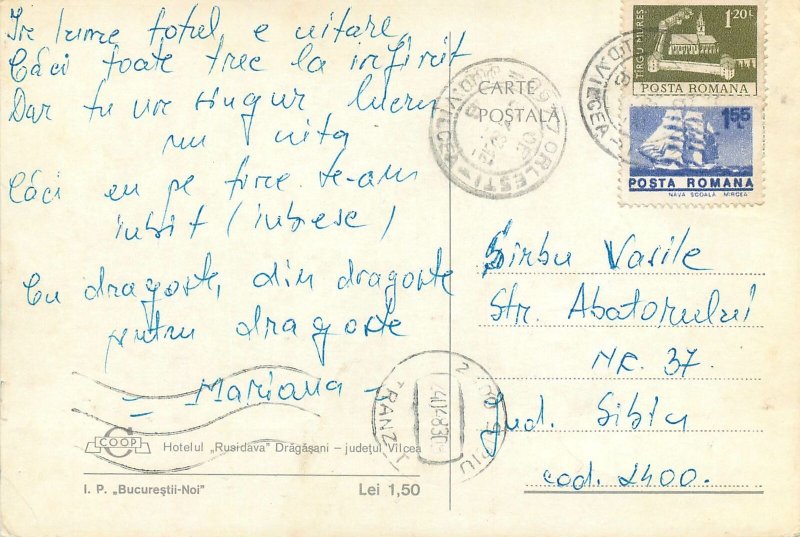 În lume totul e uitare
Căci toate trec la infinit
Dar tu un singur lucru
nu uita
Căci eu pe tine te-am
iubit (iubesc)
Cu dragoste, din dragoste
pentru dragoste
- Mariana -
COOP
Hotelul „Rusidava” Drăgășani – județul Vîlcea
I. P. „Bucureștii-Noi”
Lei 1,50
CARTE
POSTALA
ORLESTI
TÎRGU MUREȘ
1.20L
POSTA ROMANA
1.55
L
POSTA ROMANA
NAVA SCOALA MIRCEA
Sirbu Vasile
Str. Abatorului
NR. 37.
Jud. Sibiu
cod. 2400.
TRANZIT
SIBIU